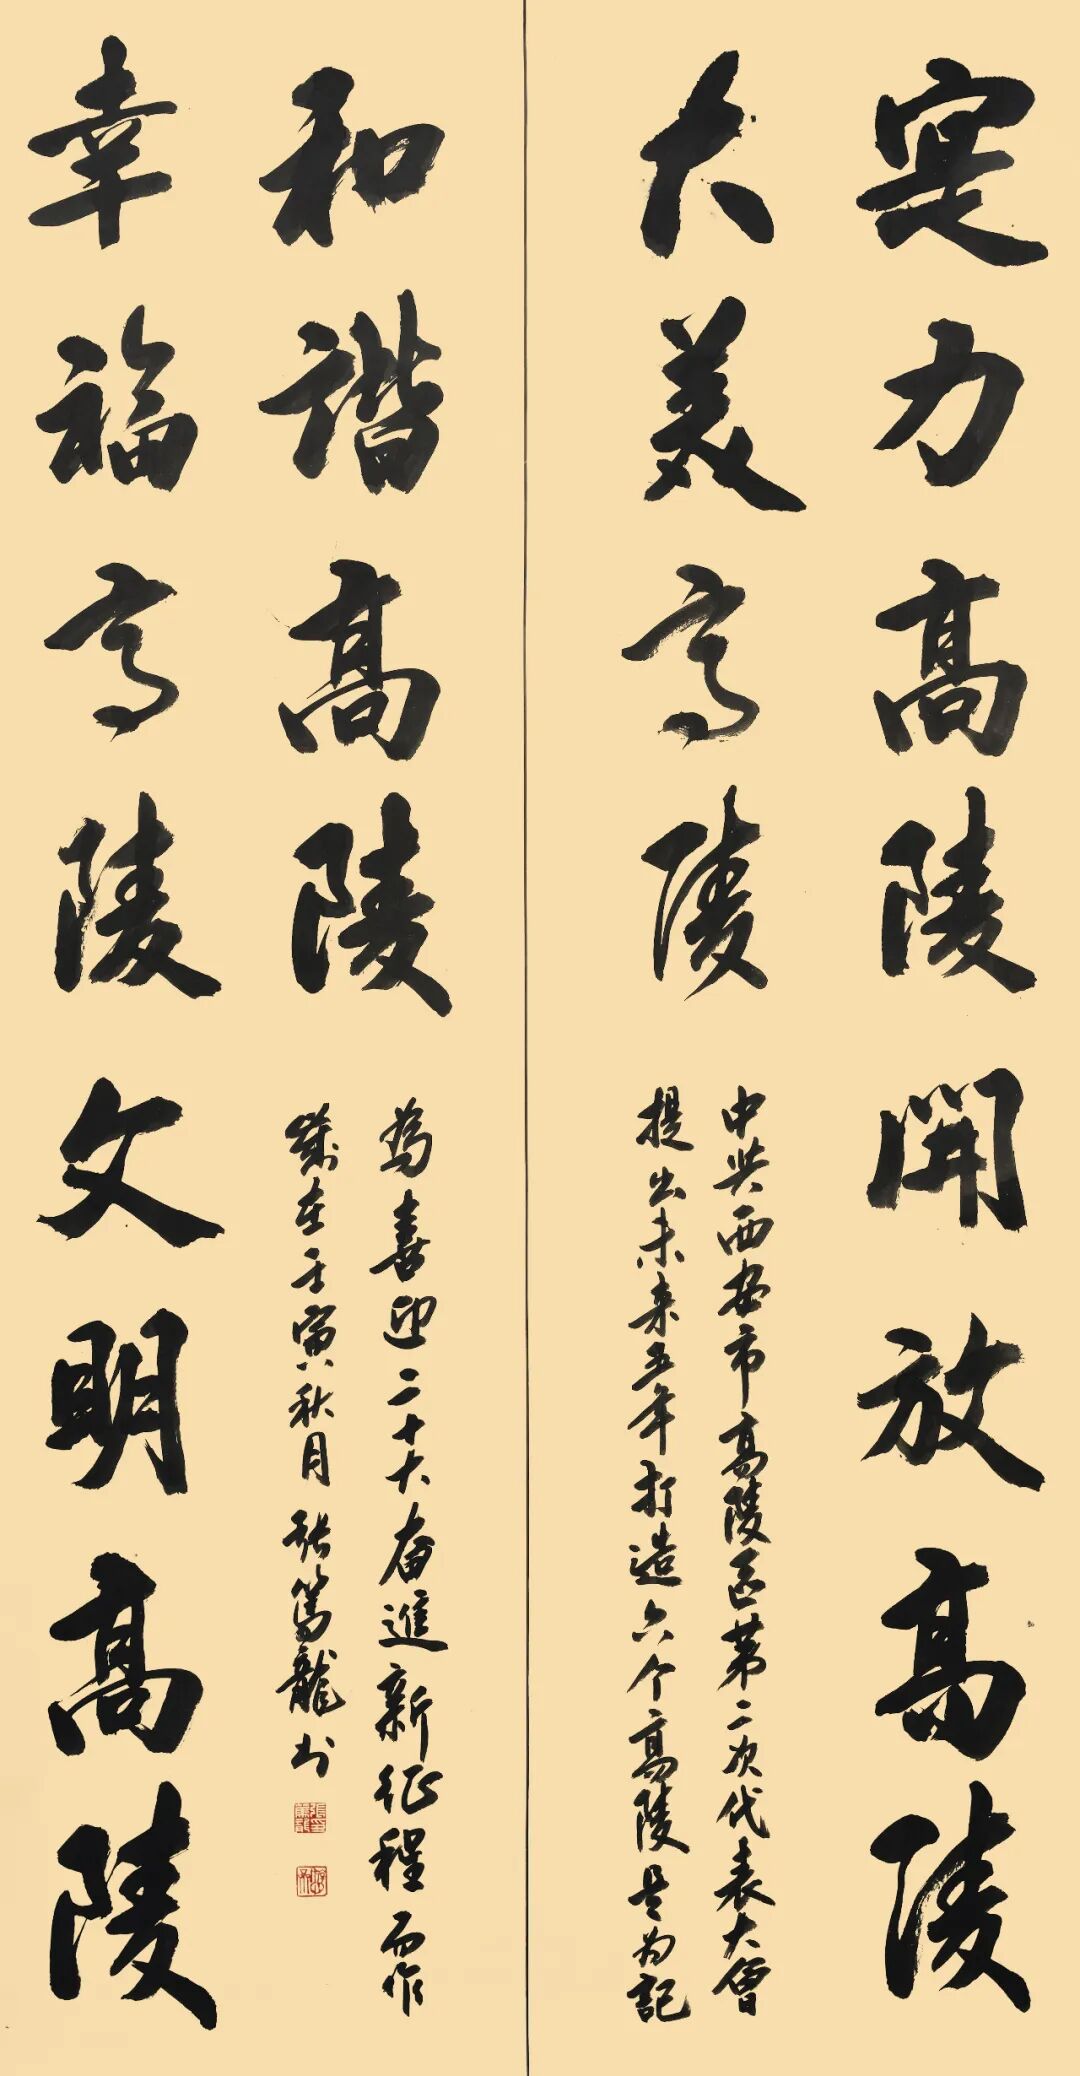 寔力高陵開放高陵
大美高陵
中共西安市高陵区第二次代表大會
提出未来五年打造六个高陵是为記
和谐高陵
為喜迎二十大奋進新征程而作
歲在壬寅秋月张篤龍书
幸福高陵文明高陵